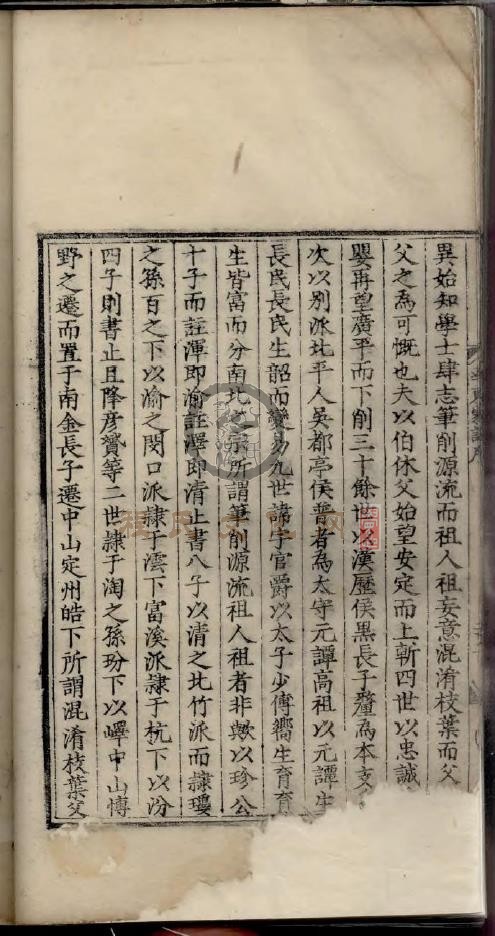 異始知學士肆志筆削源流而祖人祖妄意混淆枝葉而父
父之為可慨也夫以伯休父始望安定而上斬四世以忠誠
嬰再望廣平而下削三十餘世以漢歷侯黑長子釐為本支
次以別派北平人吳都亭侯普者為太守元譚高祖以元譚生
長民長民生韶而變易九世諱字官爵以太子少傅嚮生育育
生皆富而分南北之宗所謂筆削源流祖人祖者非歟以珍公
十子而註渾即渝註澤即清止書八子以清之北竹派而隸瓊
之孫百之下以渝之閔口派隸于澐下富溪派隸于杭下以汾
四子則書止且降彥贇等二世隸于淘之孫玢下以嶧中山博
野之遷而置于南金長子遷中山定州皓下所謂混淆枝葉父